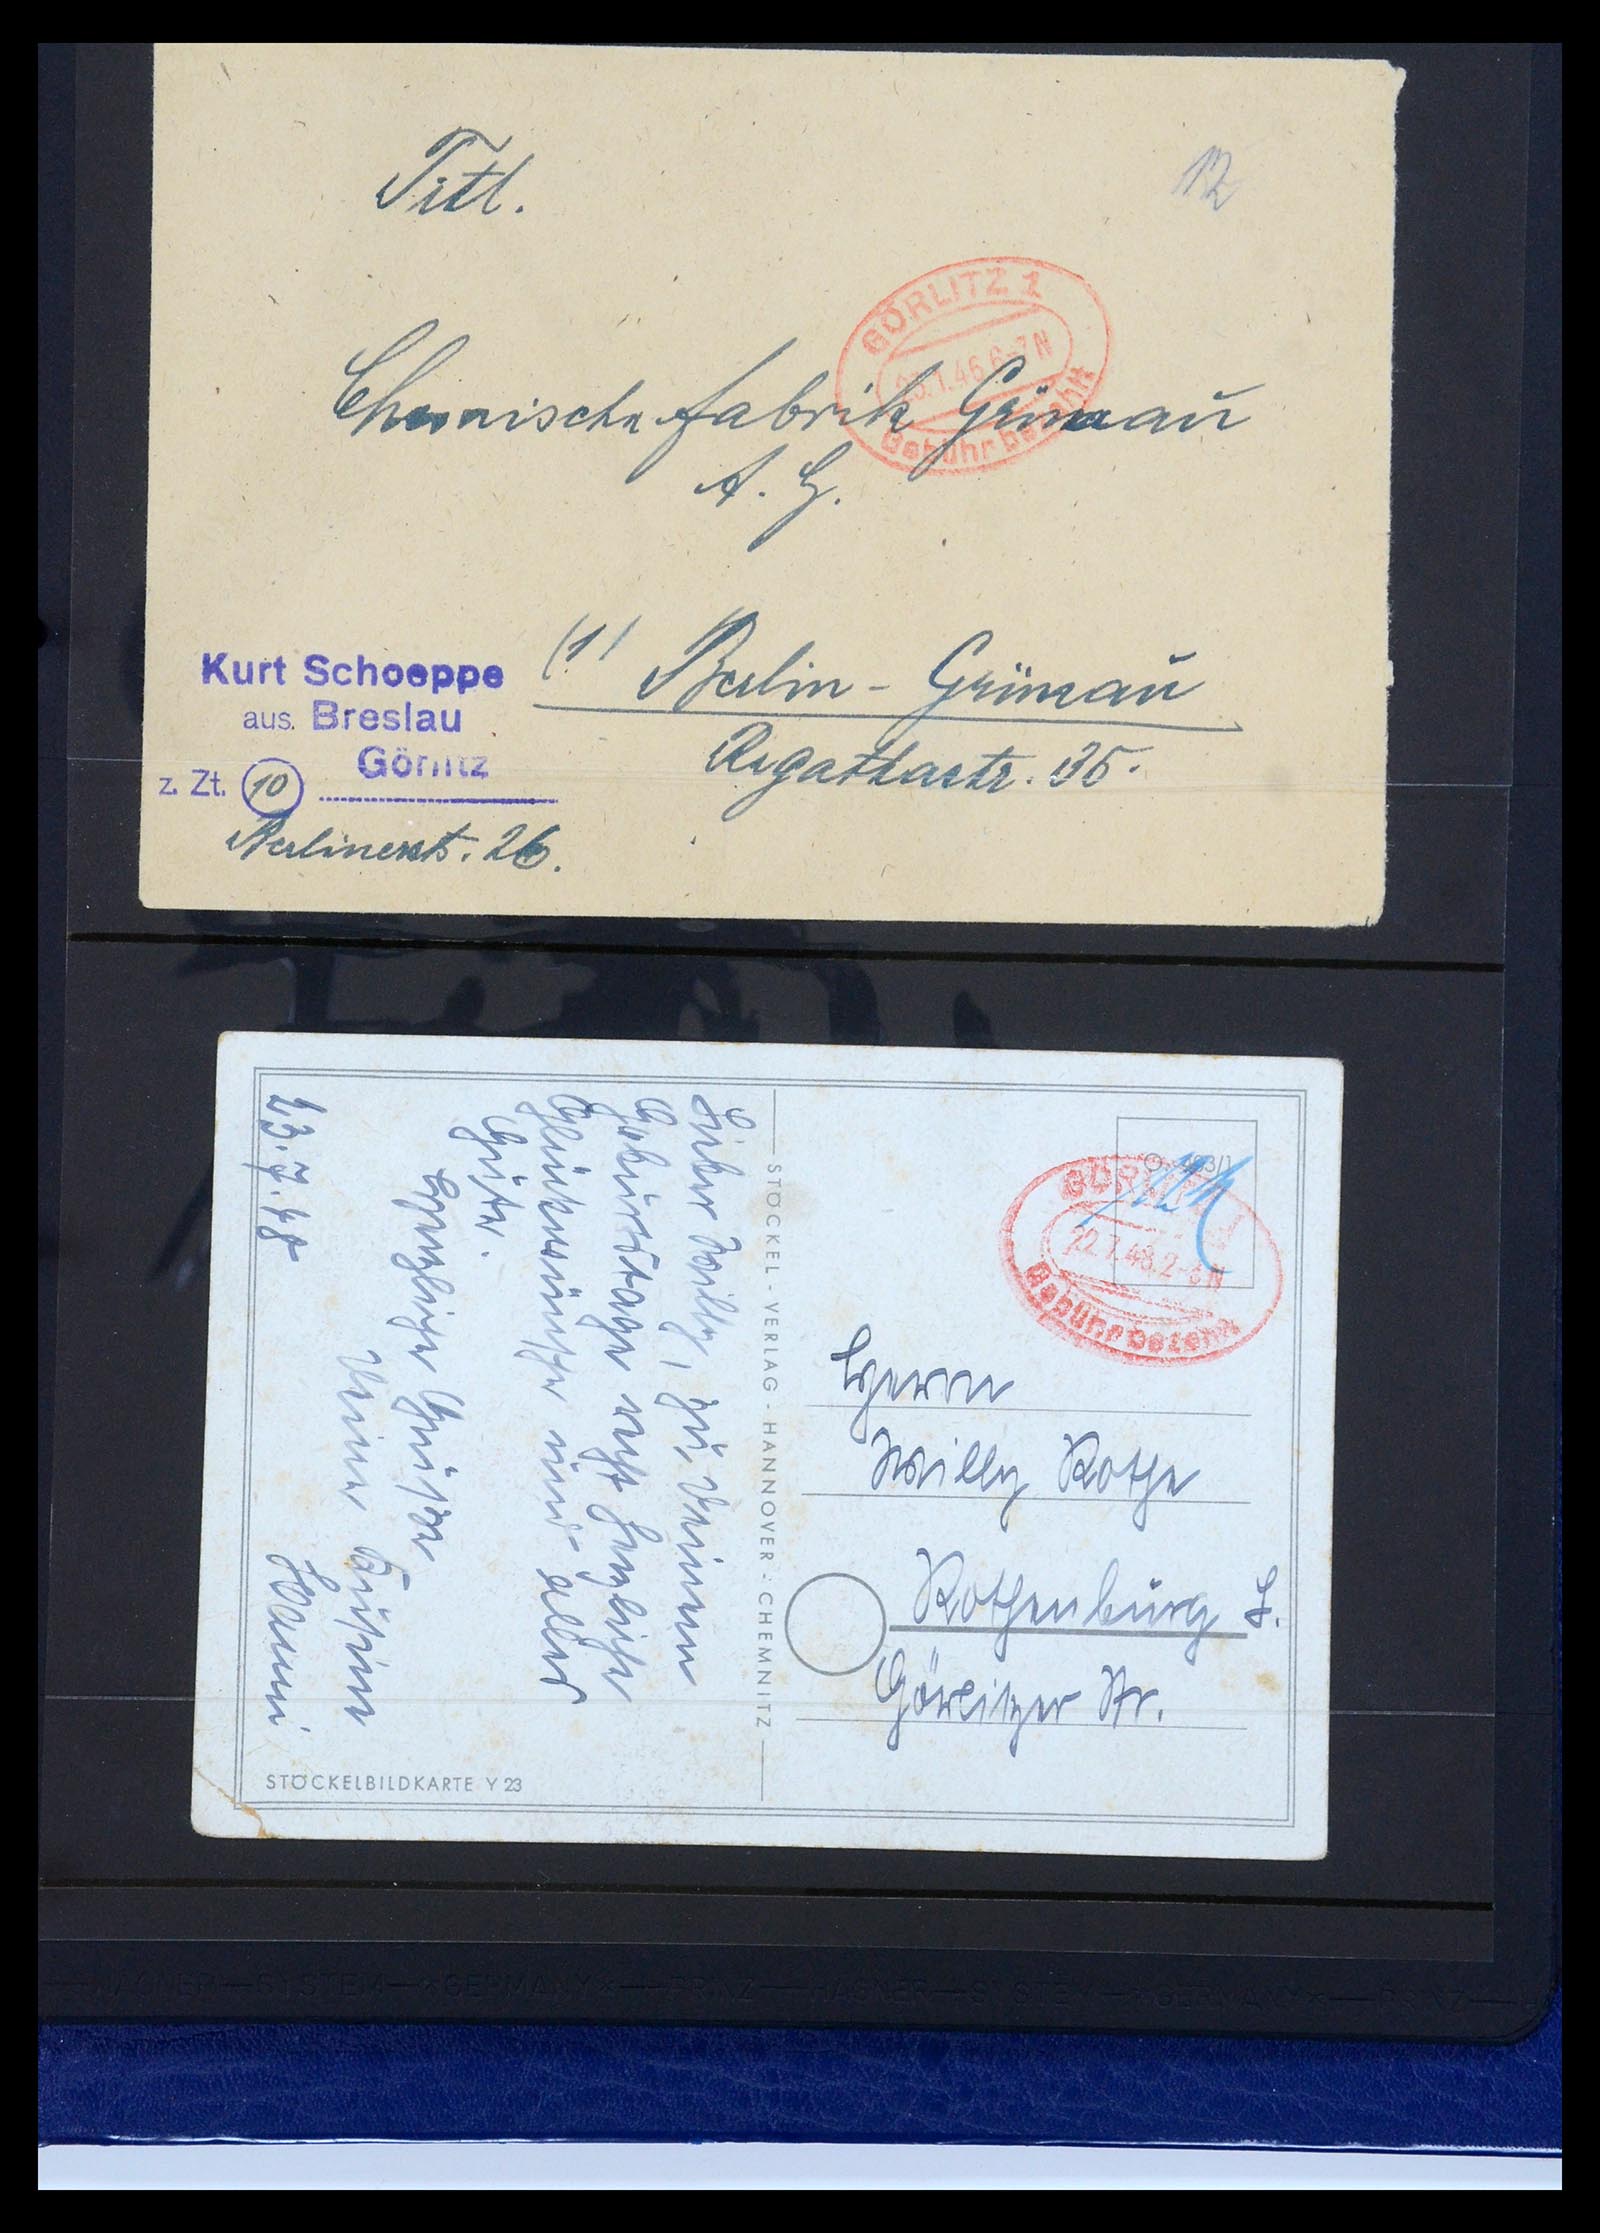 Titl.
12
GÖRLITZ 1
23.1.46.6-7N
Gebühr bezahlt
Chemische Fabrik Grünau
A. G.
(1) Berlin - Grünau
Regattastr. 35.
Kurt Schoeppe
aus. Breslau
Görlitz
z. Zt. 10
Berlinerstr. 26.
22.7.48.2-3N
Gebühr bezahlt
Herrn
Willy Rothe
Rothenburg L.
Görlitzer Str.
STÖCKEL - VERLAG - HANNOVER - CHEMNITZ
Lieber Willy, zu Deinem
Geburtstage recht herzliche
Glückwünsche und alles
Gute.
Herzliche Grüße
Deine
Hanni
23.7.48
STÖCKELBILDKARTE Y 23
HAGNER—SYSTEM—*GERMANY*——PRINZ——HAGNER—SYSTEM—*GERMANY*——PRINZ——